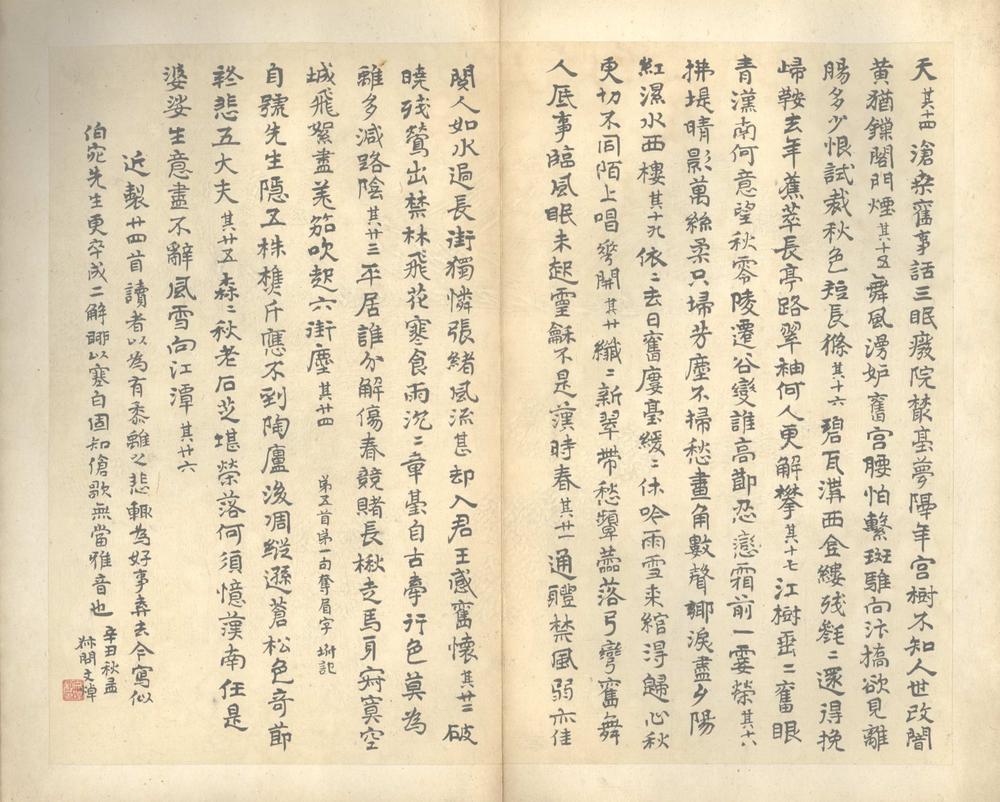 天 其十四 滄桒舊事話三眠癈院叢臺夢隔年宮樹不知人世改闇
黃猶鏁閤門煙 其十五 舞風漫妒舊宮腰怕繫斑騅向汴橋欲見離
腸多少恨試裁秋色短長條 其十六 碧瓦溝西金縷殘毿〻還得挽
歸鞍去年蕉萃長亭路翠袖何人更解攀 其十七 江樹垂〻舊眼
青漢南何意望秋零陵遷谷變誰高節忍戀霜前一霎榮 其十八
拂堤晴影萬絲柔只埽芳塵不掃愁畫角數聲鄉淚盡夕陽
紅濕水西樓 其十九 依〻去日舊廔臺緩〻休吟雨雪來綰得歸心秋
更切不同陌上唱 開 其廿 纖〻新翠帶愁顰蘦落弓彎舊舞
人底事臨風眠未起靈龢不是漢時春 其廿一 通體禁風弱亦佳
閱人如水過長街獨憐張緒風流甚却入君王感舊懷 其廿二 破
曉殘鶯出禁林飛花寒食雨沈〻章臺自古牽行色莫為
離多減路陰 其廿三 平居誰分解傷春競賭長楸走馬身寂寞空
城飛絮盡羌笳吹起六街塵 其廿四 第五首第一句奪眉字 坿記
自號先生隱五株樵斤應不到陶廬後凋縱遜蒼松色奇節
終悲五大夫 其廿五 森〻秋老石芝堪榮落何須憶漢南任是
婆娑生意盡不辭風雪向江潭 其廿六
近製廿四首讀者以為有黍離之悲輒為好事弆去今寫似
伯宛先生更卒成二解聊以塞白固知傖歌無當雅音也
辛丑秋孟
文焯